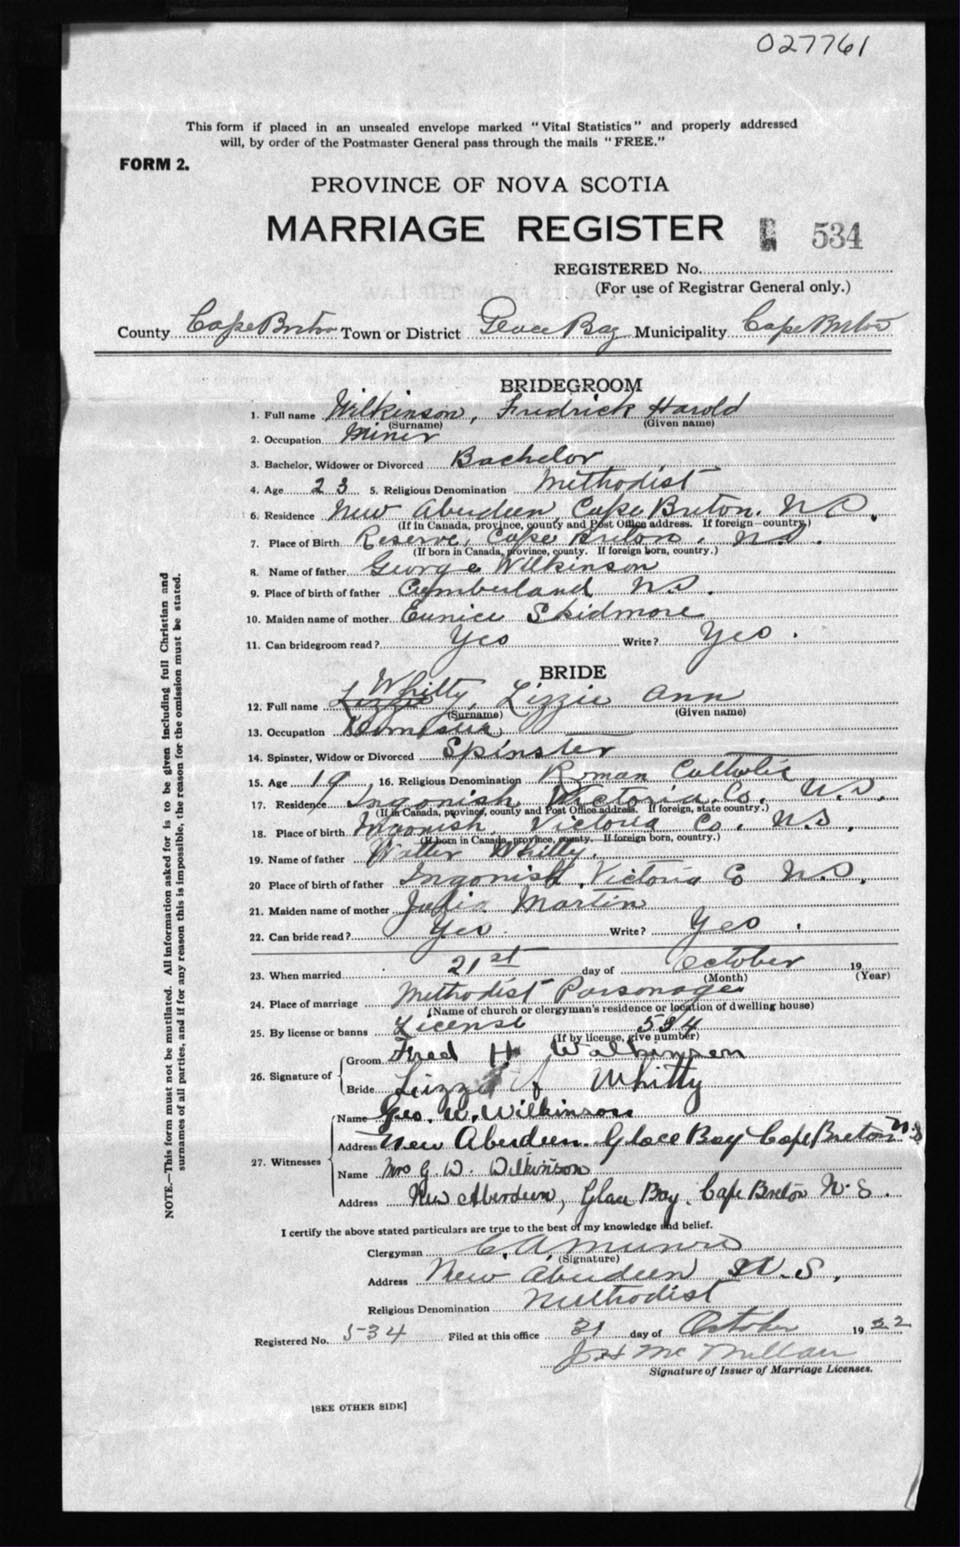 027761
This form if placed in an unsealed envelope marked "Vital Statistics" and properly addressed
will, by order of the Postmaster General pass through the mails "FREE."
FORM 2.
PROVINCE OF NOVA SCOTIA
MARRIAGE REGISTER 534
REGISTERED No.
(For use of Registrar General only.)
County Cape Breton Town or District Glace Bay Municipality Cape Breton
BRIDEGROOM
1. Full name Wilkinson, Fredrick Harold
(Surname) (Given name)
2. Occupation Miner
3. Bachelor, Widower or Divorced Bachelor
4. Age 23 5. Religious Denomination Methodist
6. Residence New Aberdeen, Cape Breton. N.S.
(If in Canada, province, county and Post Office address. If foreign—country)
7. Place of Birth Reserve, Cape Breton, N.S.
(If born in Canada, province, county. If foreign born, country.)
8. Name of father George Wilkinson
9. Place of birth of father Cumberland NS.
10. Maiden name of mother Eunice Skidmore
11. Can bridegroom read? Yes Write? Yes.
BRIDE
12. Full name Lizzie Whitty, Lizzie Ann
(Surname) (Given name)
13. Occupation Domestic
14. Spinster, Widow or Divorced Spinster
15. Age 19 16. Religious Denomination Roman Catholic
17. Residence Ingonish Victoria Co. N.S.
(If in Canada, province, county and Post Office address. If foreign, state country.)
18. Place of birth Ingonish, Victoria Co. N.S.
(If born in Canada, province, county. If foreign born, country.)
19. Name of father Walter Whitty.
20 Place of birth of father Ingonish, Victoria Co N.S.
21. Maiden name of mother Julia Martin
22. Can bride read? Yes. Write? Yes.
23. When married 21st day of October 19
(Month) (Year)
24. Place of marriage Methodist Parsonage
(Name of church or clergyman's residence or location of dwelling house)
25. By license or banns License 534
(If by license, give number)
26. Signature of
Groom Fred H Wilkinson
Bride Lizzie A Whitty
27. Witnesses
Name Geo. W. Wilkinson
Address New Aberdeen. Glace Bay Cape Breton N.S
Name Mrs G. W. Wilkinson
Address New Aberdeen, Glace Bay, Cape Breton N.S.
I certify the above stated particulars are true to the best of my knowledge and belief.
Clergyman C. A. Munro
(Signature)
Address New Aberdeen N.S.
Religious Denomination Methodist
Registered No. 534 Filed at this office 31 day of October 1922
J H McMillan
Signature of Issuer of Marriage Licenses.
[SEE OTHER SIDE]
NOTE.—This form must not be mutilated. All information asked for is to be given including full Christian and
surnames of all parties, and if for any reason this is impossible, the reason for the omission must be stated.